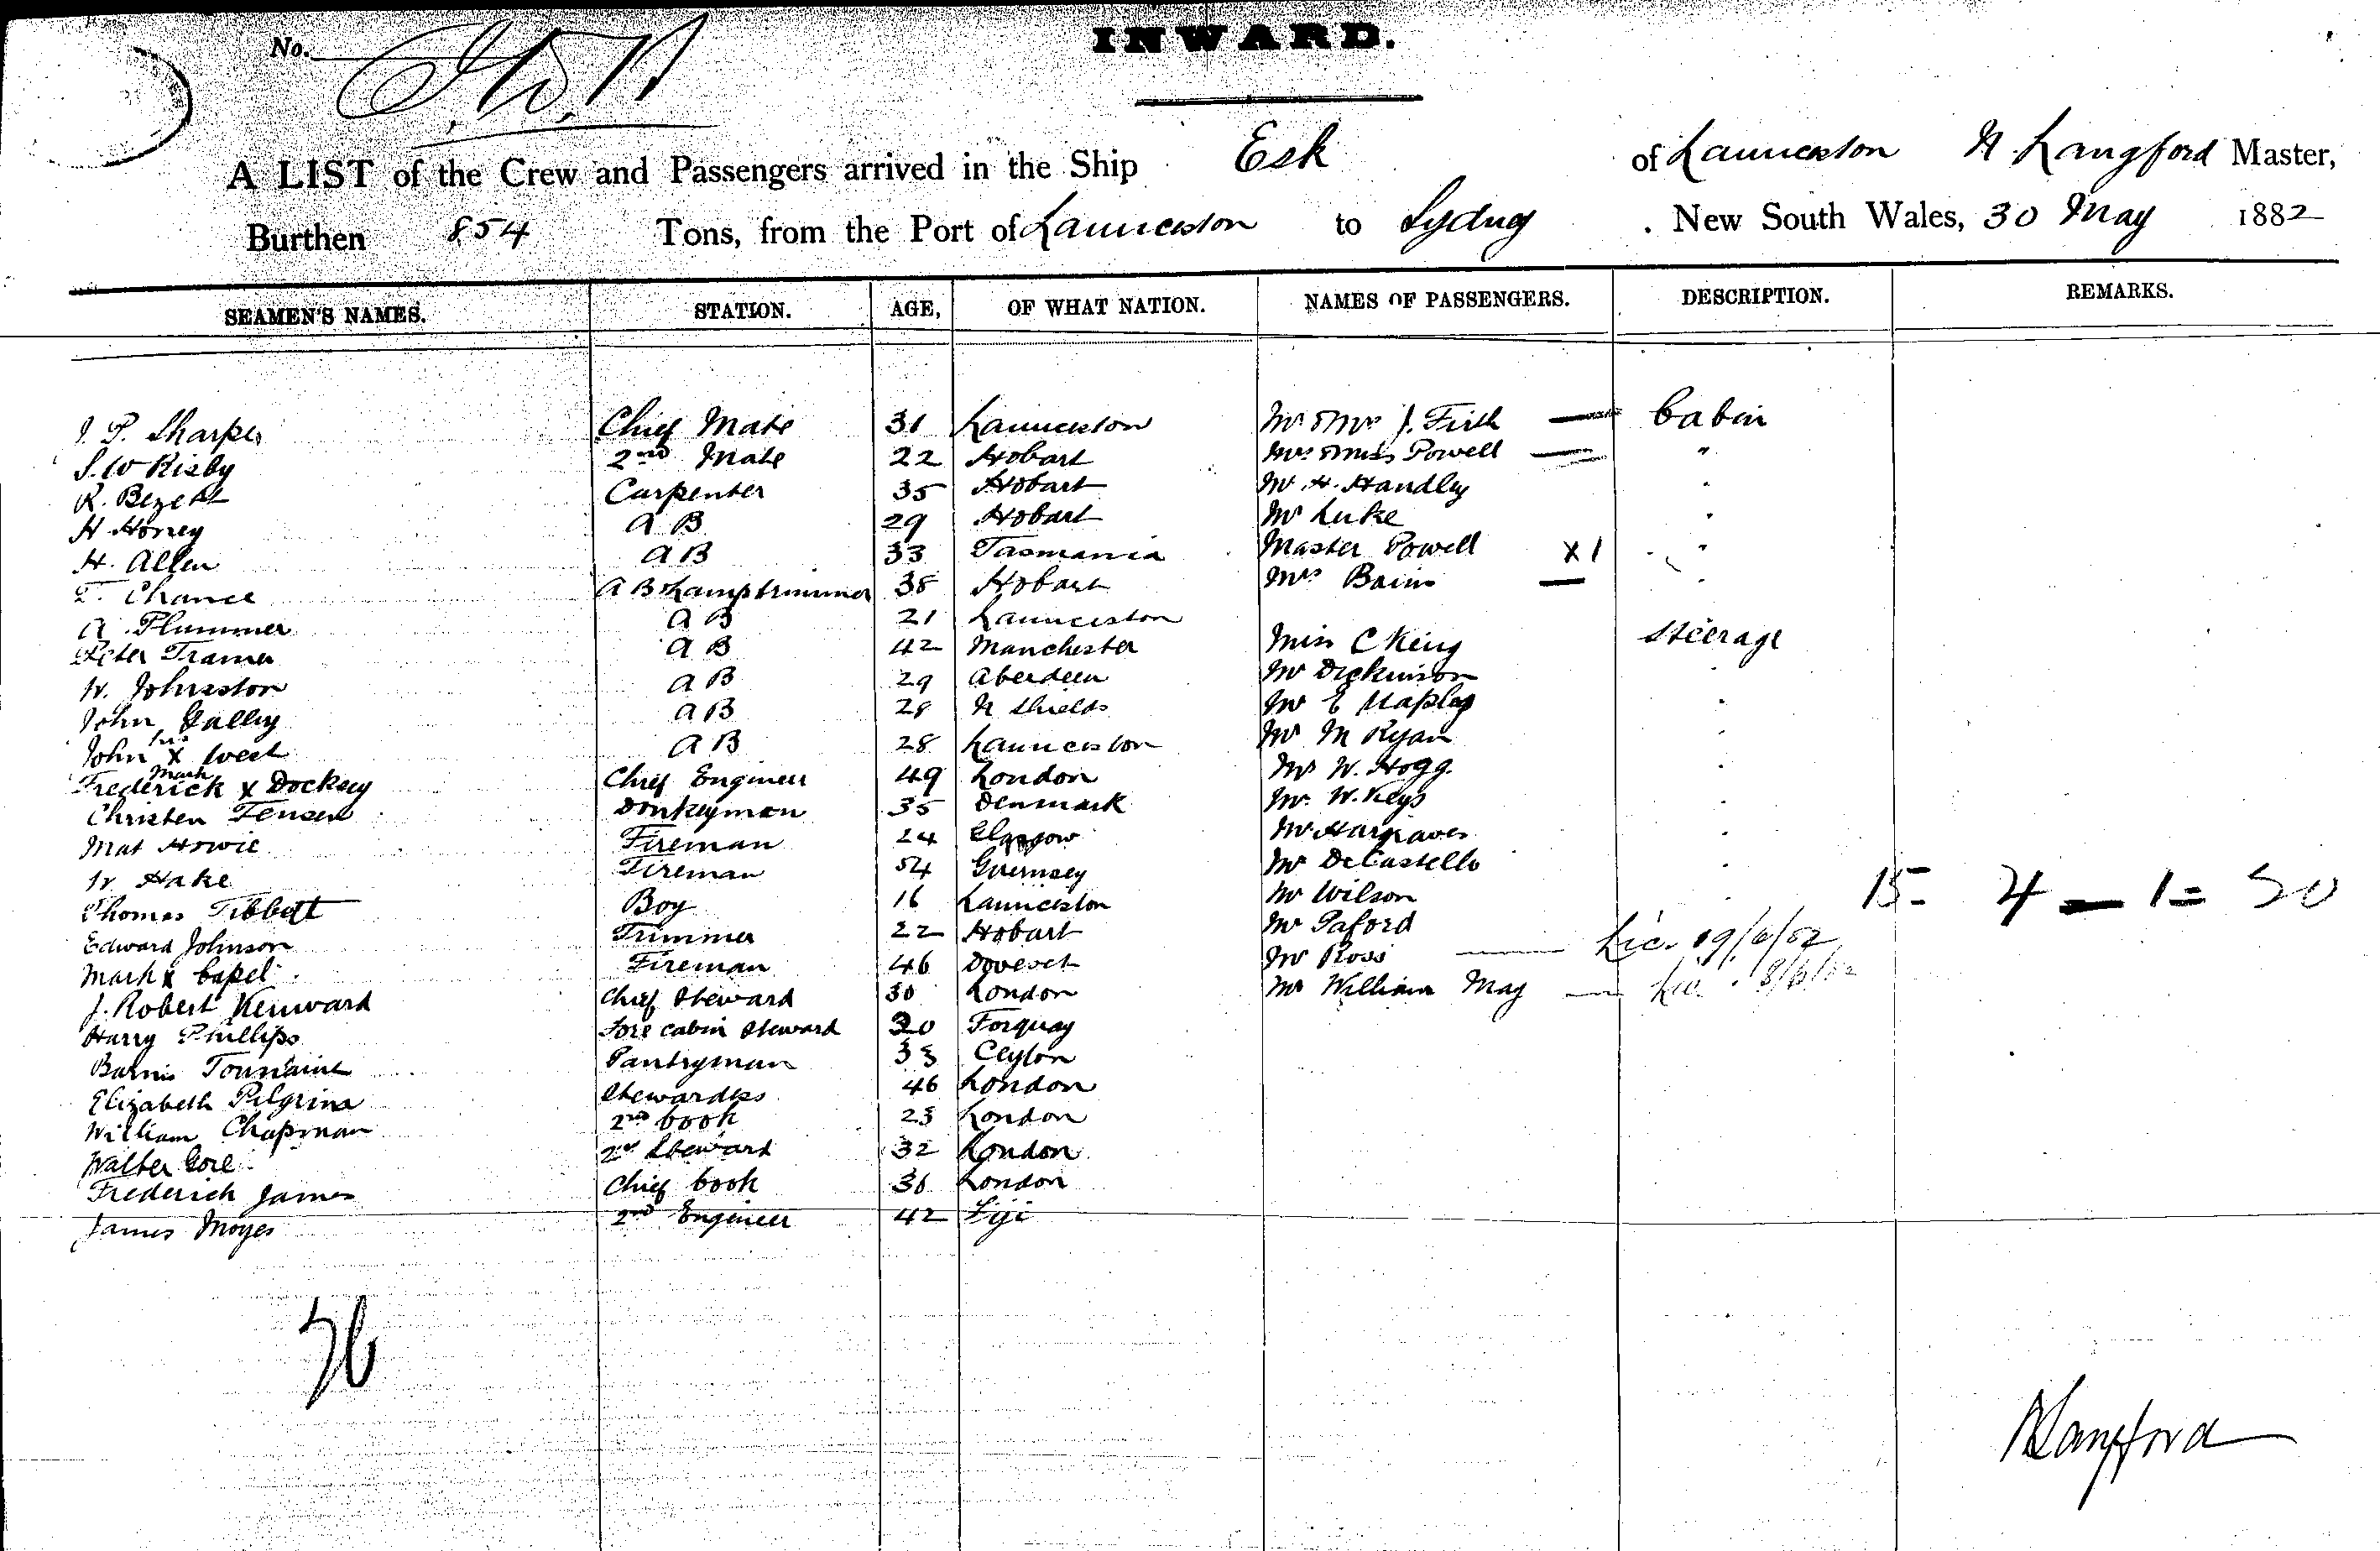 No.
INWARD.
A LIST of the Crew and Passengers arrived in the Ship Esk of Launceston Langford Master,
Burthen 854 Tons, from the Port of Launceston to Sydney . New South Wales, 30 May 1882
SEAMEN'S NAMES. STATION. AGE, OF WHAT NATION. NAMES OF PASSENGERS. DESCRIPTION. REMARKS.
Sharpe Chief Mate 31 Launceston Mr & Mrs J. Firth — Cabin
S. W Risby 2nd Mate 22 Hobart Mrs & Miss Powell — "
R. Carpenter 35 Hobart Mr H. Handley "
H A B 29 Hobart Mr Luke "
H. Allen A B 33 Tasmania Master Powell X 1 "
T. Chance A B & Lamptrimmer 38 Hobart Mrs — "
A. Plummer A B 21 Launceston
Peter A B 42 Manchester Miss C King Steerage
W. Johnston A B 29 Aberdeen Mr Dickinson "
John A B 28 N Shields Mr E "
John his X West A B 28 Launceston Mr M Ryan "
Frederick mark X Dockey Chief Engineer 49 London Mr W. Hogg. "
Christen Jensen Donkeyman 35 Denmark Mr. W. Keys "
Mat Howie Fireman 24 Glasgow Mr Hargraves "
W Hake Fireman 54 Guernsey Mr DeCastello "
Thomas Tibbett Boy 16 Launceston Mr Wilson " 15 - 4 — 1 =
Edward Johnson Trimmer 22 Hobart Mr Paford
Mark X Capel Fireman 46 Mr Ross —
J. Robert Kenward Chief Steward 30 London Mr William May —
Harry Phillips Fore cabin Steward 20 Torquay
Toussaint Pantryman 33 Ceylon
Elizabeth Pilgrim Stewardess 46 London
William Chapman 2nd Cook 23 London
Walter Gore 2nd Steward 32 London
Frederick James Chief Cook 36 London
James Moyes 2nd Engineer 42 Fiji
Langford